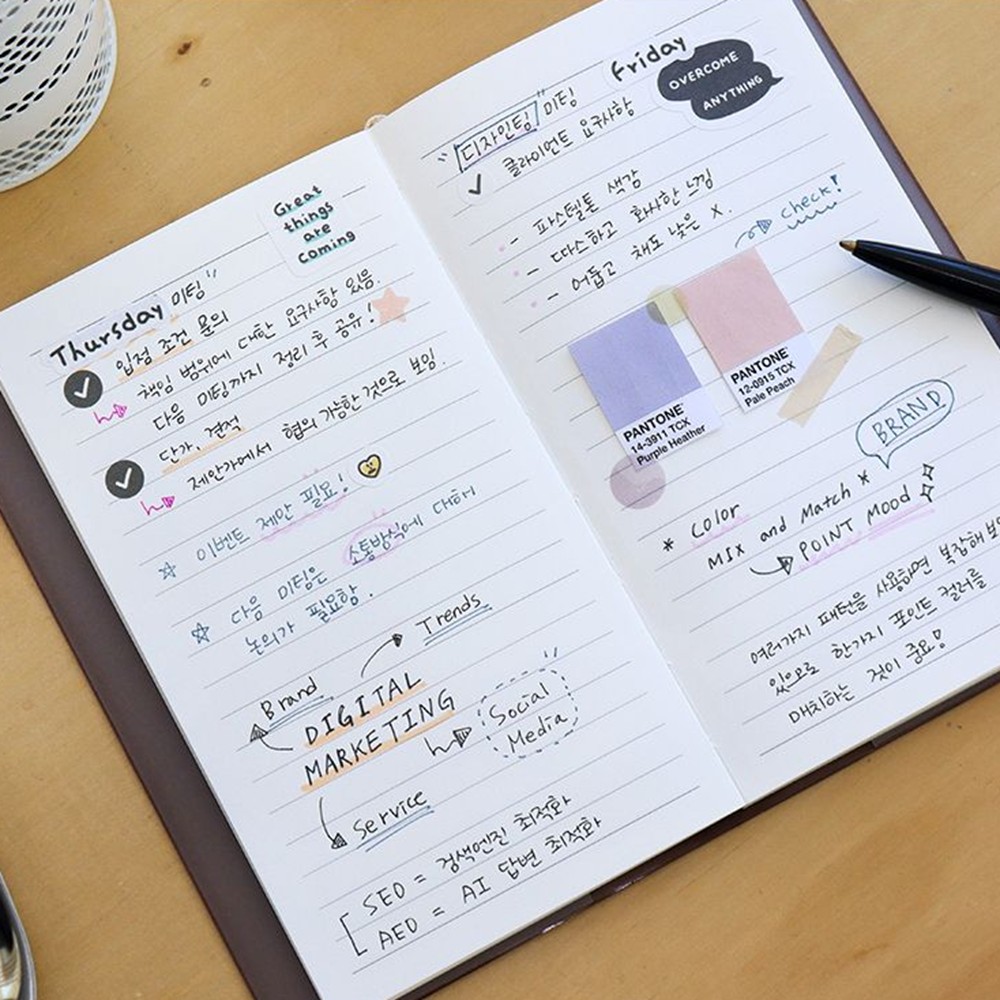 Great
things
are
coming
Thursday 미팅"
입점 조건 문의
책임 범위에 대한 요구사항 있음.
다음 미팅까지 정리 후 공유!
단가, 견적
제안가에서 협의 가능한 것으로 보임.
이벤트 제안 필요!
다음 미팅은 소통방식에 대해
논의가 필요함.
Trends
Brand
DIGITAL
MARKETING
Social
Media
Service
SEO = 검색엔진 최적화
AEO = AI 답변 최적화
Friday
OVERCOME
ANYTHING
"디자인팅" 미팅
클라이언트 요구사항
- 파스텔톤 색감
- 따스하고 화사한 느낌
- 어둡고 채도 낮은 X.
check!
PANTONE
14-3911 TCX
Purple Heather
PANTONE
12-0915 TCX
Pale Peach
BRAND
* Color
MIX and Match *
POINT Mood
여러가지 패턴을 사용하면 복잡해보
있으므로 한가지 포인트 컬러를
매치하는 것이 중요!